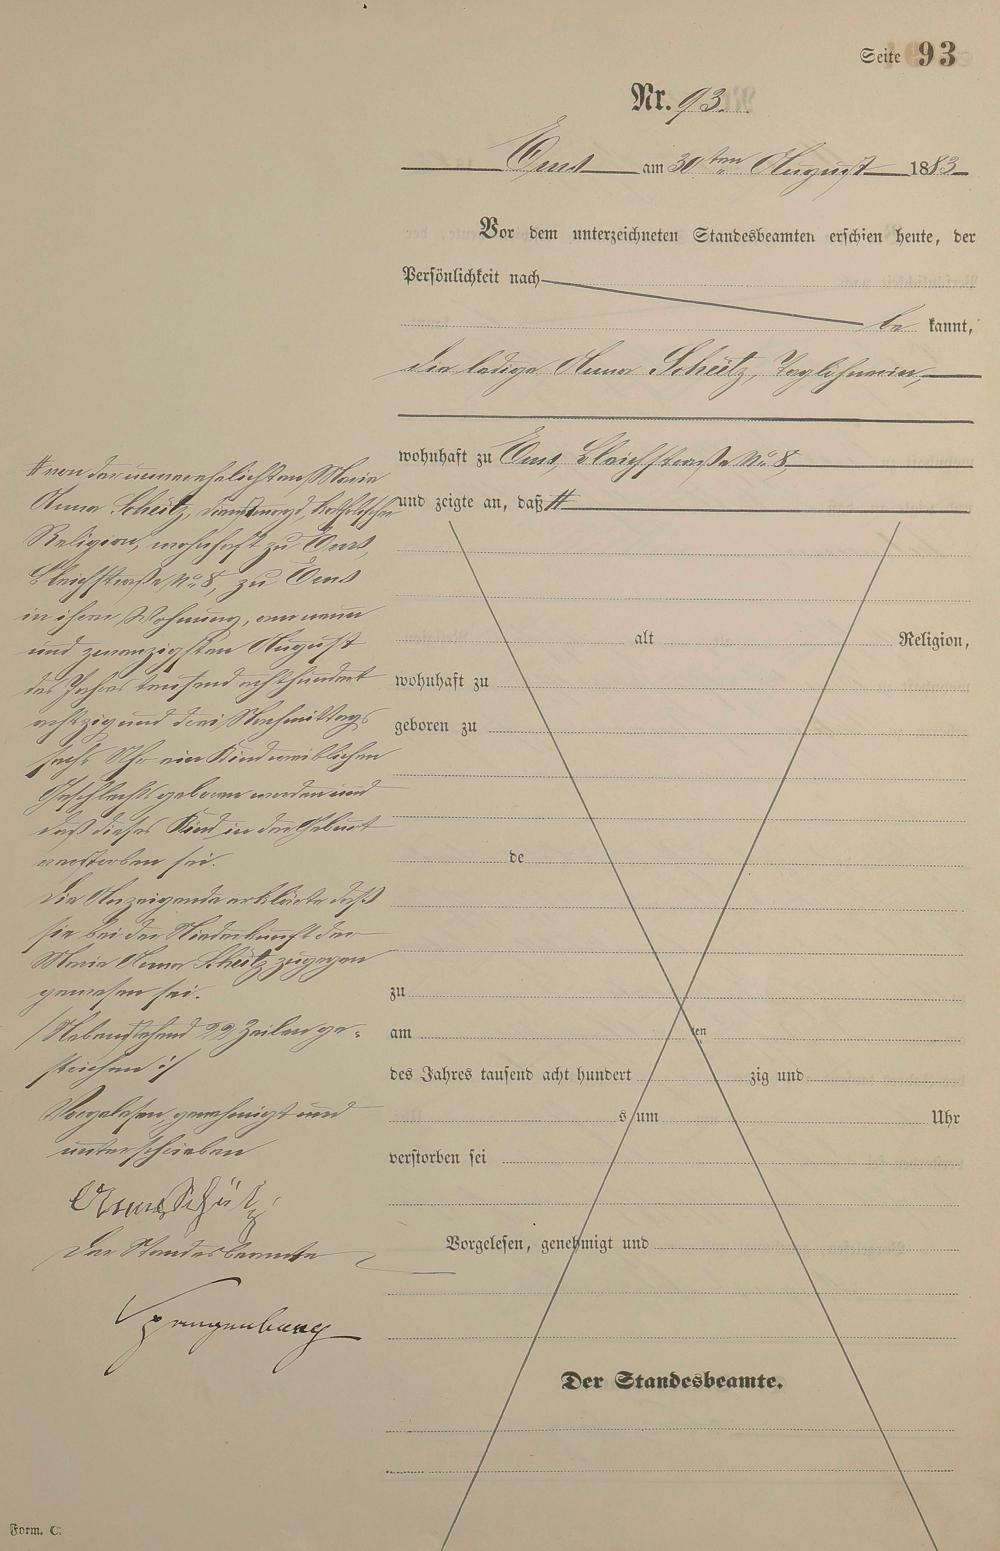 Seite 93
Nr. 93.
Ems am 30ten August 1883
Vor dem unterzeichneten Standesbeamten erschien heute, der
Persönlichkeit nach
be kannt,
die ledige Anna Scheitz, Taglöhnerin,
wohnhaft zu Ems, Bleichstraße No. 8
und zeigte an, daß #
# von der unverehelichten Marie
Anna Scheitz, Dienstmagd, katholischer
Religion, wohnhaft zu Ems,
Bleichstraße No. 8, zu Ems
in ihrer Wohnung, am neun
und zwanzigsten August
des Jahres tausend achthundert
achtzig und drei Nachmittags
sechs Uhr ein Kind weiblichen
Geschlechts geboren worden und
daß dieses Kind in der Geburt
verstorben sei.
Die Anzeigende erklärte daß
sie bei der Niederkunft der
Marie Anna Scheitz zugegen
gewesen sei.
/: Nebenstehend 22 Zeilen ge-
strichen :/
Vorgelesen, genehmigt und
unterschrieben
Anna Schütz
Der Standesbeamte
Spangenberg
alt Religion,
wohnhaft zu
geboren zu
de
zu
am ten
des Jahres tausend acht hundert zig und
s um Uhr
verstorben sei
Vorgelesen, genehmigt und
Der Standesbeamte.
Form. C.